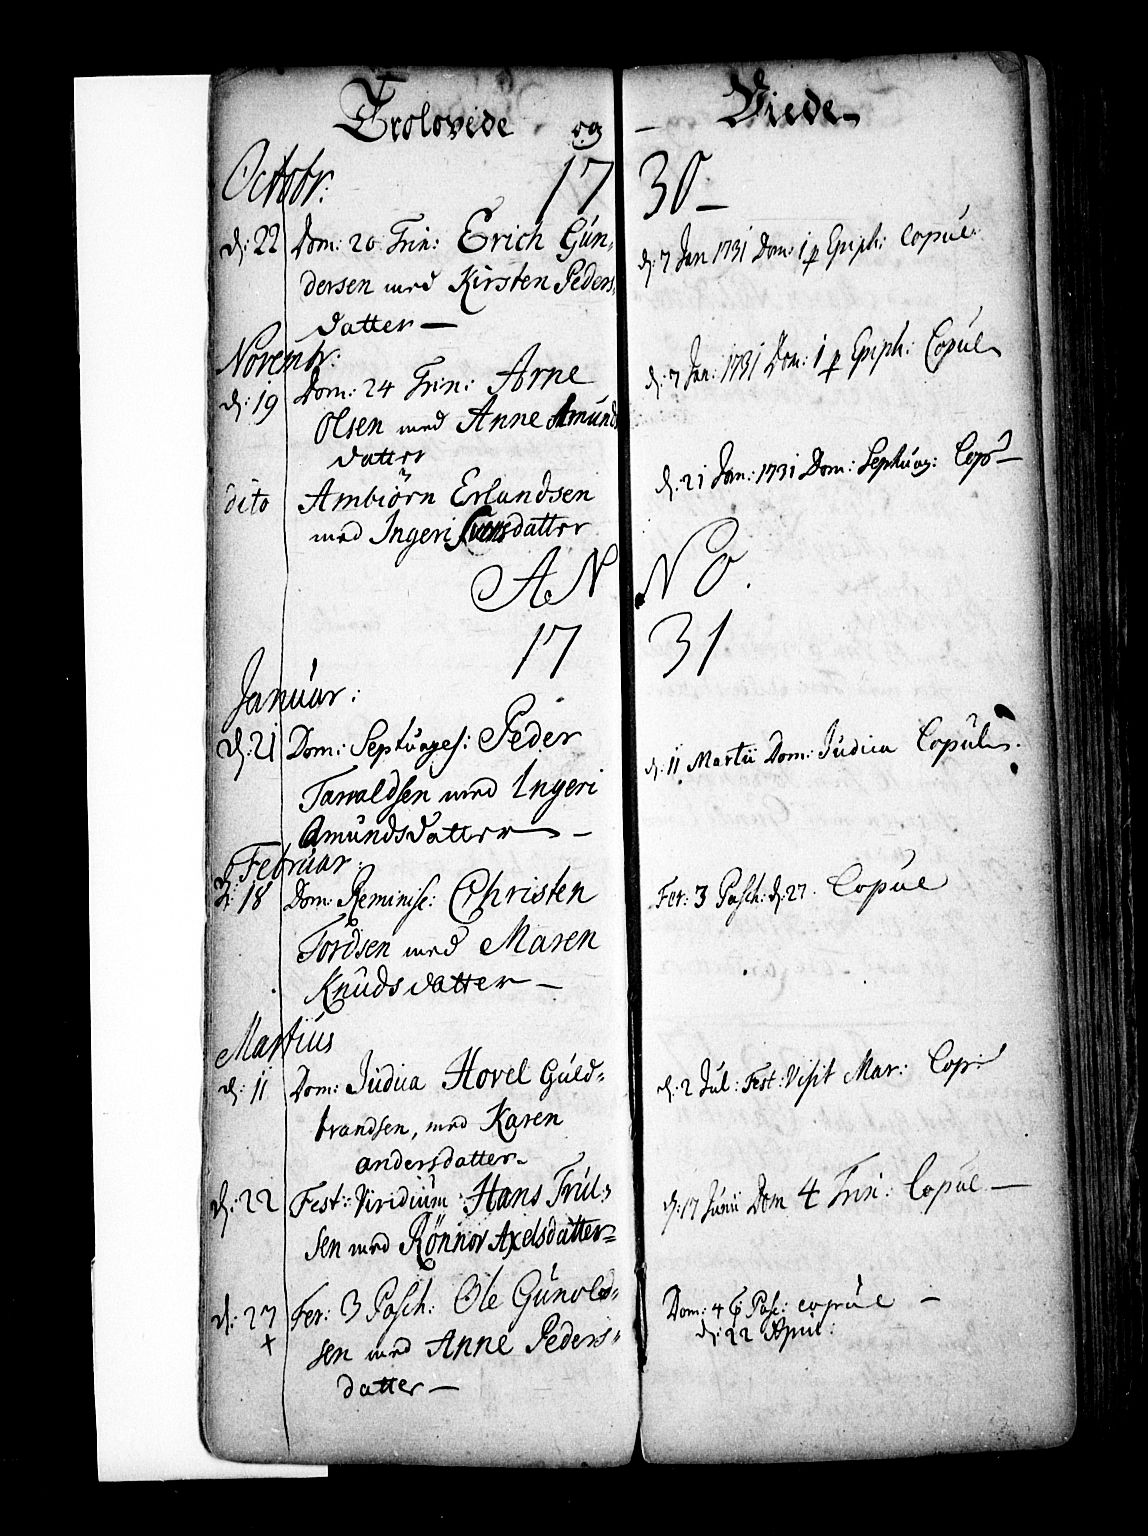 Trolovede og – Viede
Octobr: 17 30
d: 22 Dom: 20 Trin: Erich Gun-
dersen med Kirsten Peders-
datter –
d: 7 Jan 1731 Dom: 1 p Epiph: Copul:
Novembr:
d: 19 Dom: 24 Trin: Arne
Olsen med Anne Amunds
datter
d: 7 Jan: 1731 Dom: 1 p Epiph: Copul
dito Ambiörn Erlandsen
med Ingeri Iversdatter
d: 21 Jan: 1731 Dom: Septuag: Cop –
AN NO.
17 31
Januar:
d: 21 Dom: Septuages: Peder
Tarvaldsen med Ingeri
Amundsdatter –
d: 11 Martii Dom: Judica Copul.
Februar:
d: 18 Dom: Reminisc: Christen
Tordsen med Maren
Knudsdatter –
Fer: 3 Pasch: d: 27. Copul
Martius
d: 11 Dom: Judica Hovel Guld-
brandsen, med Karen
andersdatter
d: 2 Jul: Fest: Visit Mar: Cop:
d: 22 Fest: Viridium Hans Trul-
sen med Rönnor Axelsdatter
d: 17 Junii Dom 4 Trin: Copul –
d: 27 Fer: 3 Pasch: Ole Gunolds-
+
sen med Anne Peders-
datter –
Dom: 4 p Pasc: copul –
d: 22 April: